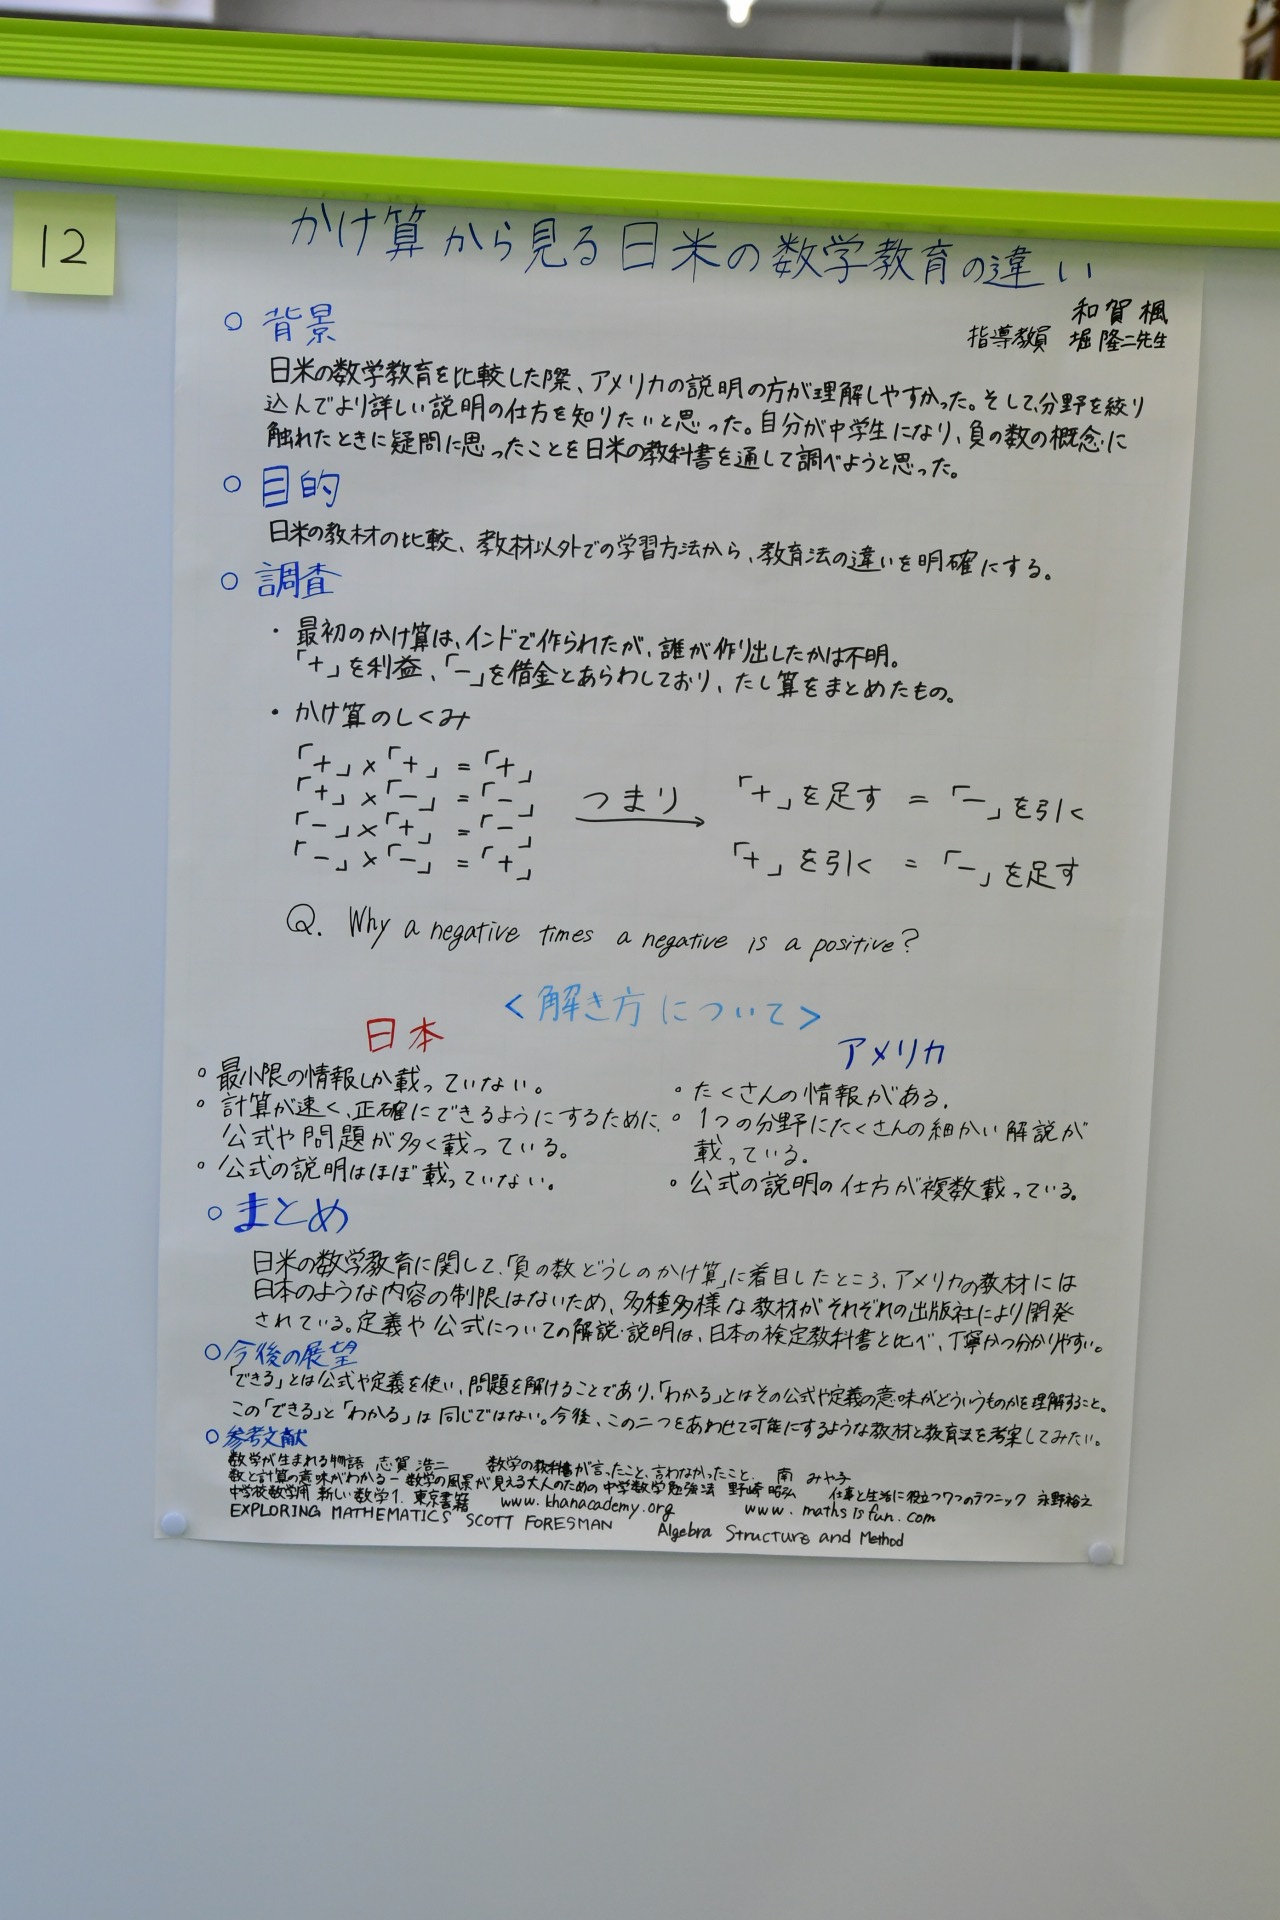 12
かけ算から見る日米の数学教育の違い
和賀 楓
指導教員 堀 隆二先生
○ 背景
日米の数学教育を比較した際、アメリカの説明の方が理解しやすかった。そして、分野を絞り
込んでより詳しい説明の仕方を知りたいと思った。自分が中学生になり、負の数の概念に
触れたときに疑問に思ったことを日米の教科書を通して調べようと思った。
○ 目的
日米の教材の比較、教材以外での学習方法から、教育法の違いを明確にする。
○ 調査
・最初のかけ算は、インドで作られたが、誰が作り出したかは不明。
「+」を利益、「-」を借金とあらわしており、たし算をまとめたもの。
・かけ算のしくみ
「+」×「+」=「+」
「+」×「-」=「-」
「-」×「+」=「-」
「-」×「-」=「+」
つまり
「+」を足す = 「-」を引く
「+」を引く = 「-」を足す
Q. Why a negative times a negative is a positive?
<解き方について>
日本
。最小限の情報しか載っていない。
。計算が速く、正確にできるようにするために、
公式や問題が多く載っている。
。公式の説明はほぼ載っていない。
アメリカ
。たくさんの情報がある。
。1つの分野にたくさんの細かい解説が
載っている。
。公式の説明の仕方が複数載っている。
○ まとめ
日米の数学教育に関して、「負の数どうしのかけ算」に着目したところ、アメリカの教材には
日本のような内容の制限はないため、多種多様な教材がそれぞれの出版社により開発
されている。定義や公式についての解説・説明は、日本の検定教科書と比べ、丁寧かつ分かりやすい。
○ 今後の展望
「できる」とは公式や定義を使い、問題を解けることであり、「わかる」とはその公式や定義の意味がどういうものかを理解すること。
この「できる」と「わかる」は同じではない。今後、この二つをあわせて可能にするような教材と教育法を考案してみたい。
○ 参考文献
数学が生まれる物語 志賀 浩二 数学の教科書が言ったこと、言わなかったこと。 南 みや子
数と計算の意味がわかる-数学の風景が見える 大人のための中学数学勉強法 野崎 昭弘 仕事と生活に役立つ7つのテクニック 永野裕之
中学校数学用 新しい数学1. 東京書籍 www.khanacademy.org www.mathsisfun.com
EXPLORING MATHEMATICS SCOTT FORESMAN Algebra Structure and Method